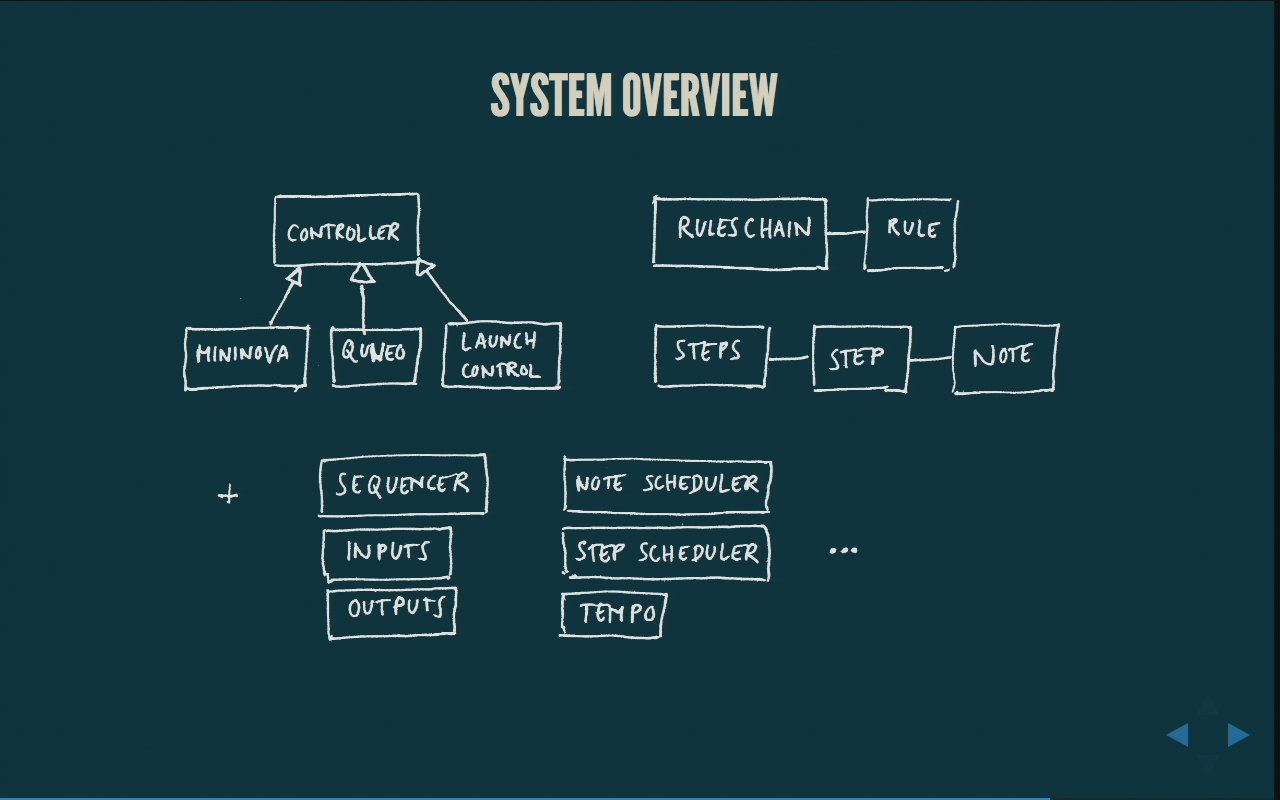 SYSTEM OVERVIEW
CONTROLLER
MININOVA
QUNEO
LAUNCH
CONTROL
RULES CHAIN
RULE
STEPS
STEP
NOTE
+
SEQUENCER
INPUTS
OUTPUTS
NOTE SCHEDULER
STEP SCHEDULER
TEMPO
...